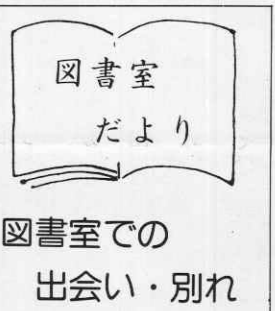 図書室
だより
図書室での
出会い・別れ